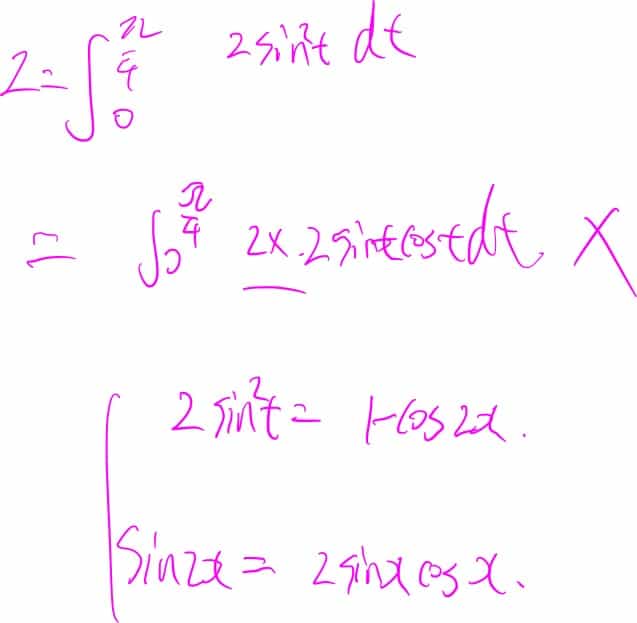 I = ∫₀^(π/4) 2sin²t dt
= ∫₀^(π/4) 2×·2sintcostdt ×
2sin²t = 1-cos2x.
Sin2x = 2sinxcosx.